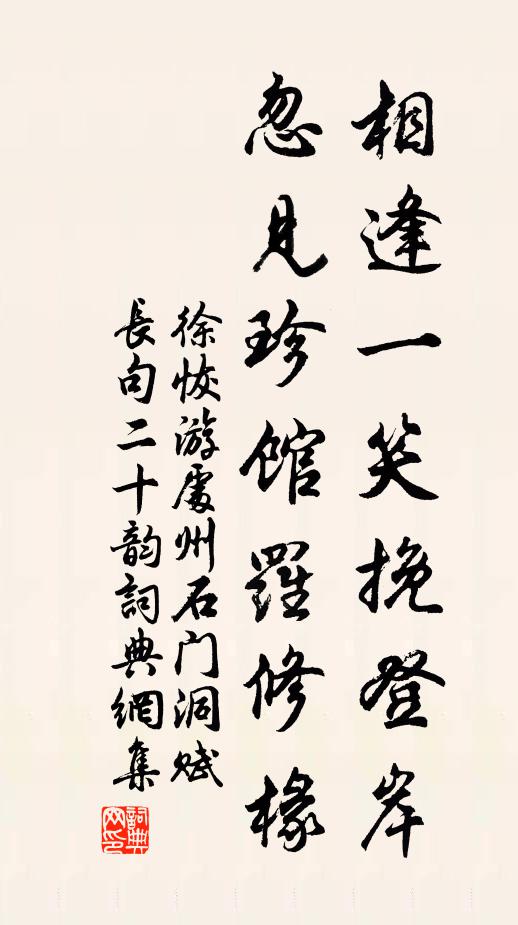 相逢一笑挽登岸
忽见珍馆羅修椽
徐恢游處州石门洞赋
長句二十韵詞典網集
詞典